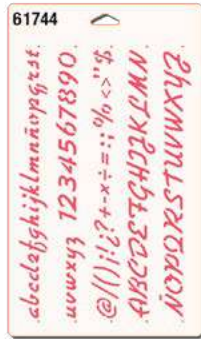 61744
abcdefghijklmnñopqrst
uvwxyz 1234567890
@/();!¿?+-x÷=:;%<>"$
ABCDEFGHIJKLMN
ÑOPQRSTUVWXYZ